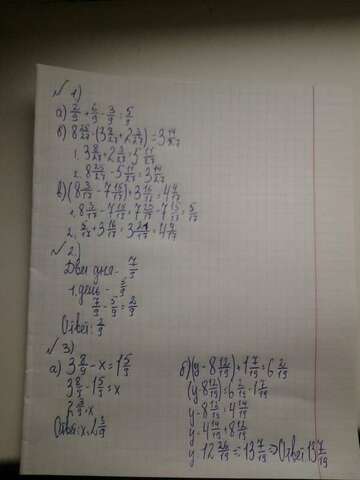 № 1)
а) 2/9 + 6/9 - 3/9 = 5/9
б) 8 25/27 - (3 8/27 + 2 3/27) = 3 14/27
1. 3 8/27 + 2 3/27 = 5 11/27
2. 8 25/27 - 5 11/27 = 3 14/27
в) (8 3/17 - 7 15/17) + 3 16/17 = 4 4/17
1. 8 3/17 - 7 15/17 = 7 20/17 - 7 15/17 = 5/17
2. 5/17 + 3 16/17 = 3 21/17 = 4 4/17
№ 2)
Два дня - 7/9
1 день - 5/9
7/9 - 5/9 = 2/9
Ответ: 2/9
№ 3)
а) 3 8/9 - x = 1 5/9
3 8/9 - 1 5/9 = x
2 3/9 = x
Ответ: x = 2 3/9
б) (y - 8 12/19) + 1 7/19 = 6 2/19
(y - 8 12/19) = 6 2/19 - 1 7/19
y - 8 12/19 = 4 14/19
y = 4 14/19 + 8 12/19
y = 12 26/19 = 13 7/19 => Ответ 13 7/19